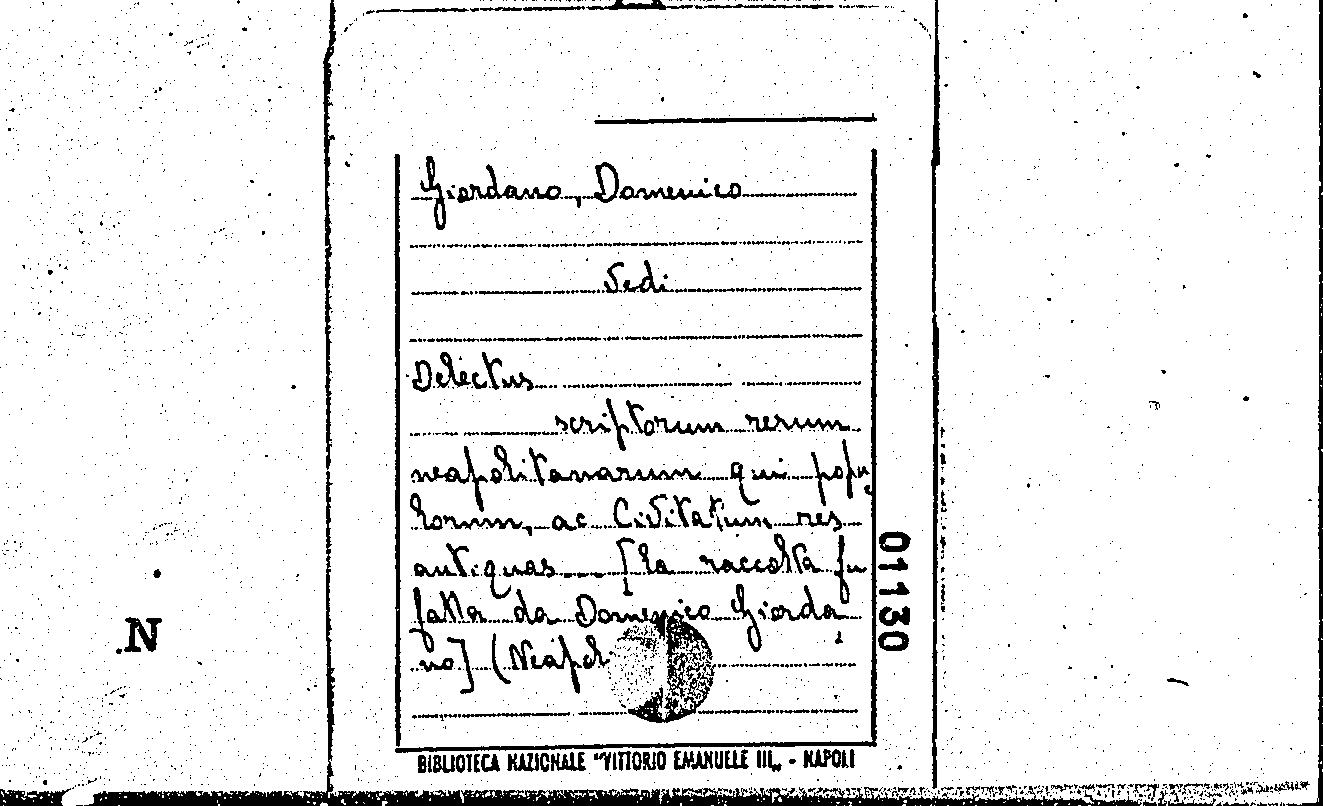 Giordano, Domenico
Vedi
Delectus
scriptorum rerum
neapolitanarum qui popu-
lorum, ac Civitatum res
antiquas ... [la raccolta fu
fatta da Domenico Giorda-
no] (Neapol
BIBLIOTECA NAZIONALE "VITTORIO EMANUELE III„ - NAPOLI
01130
.N